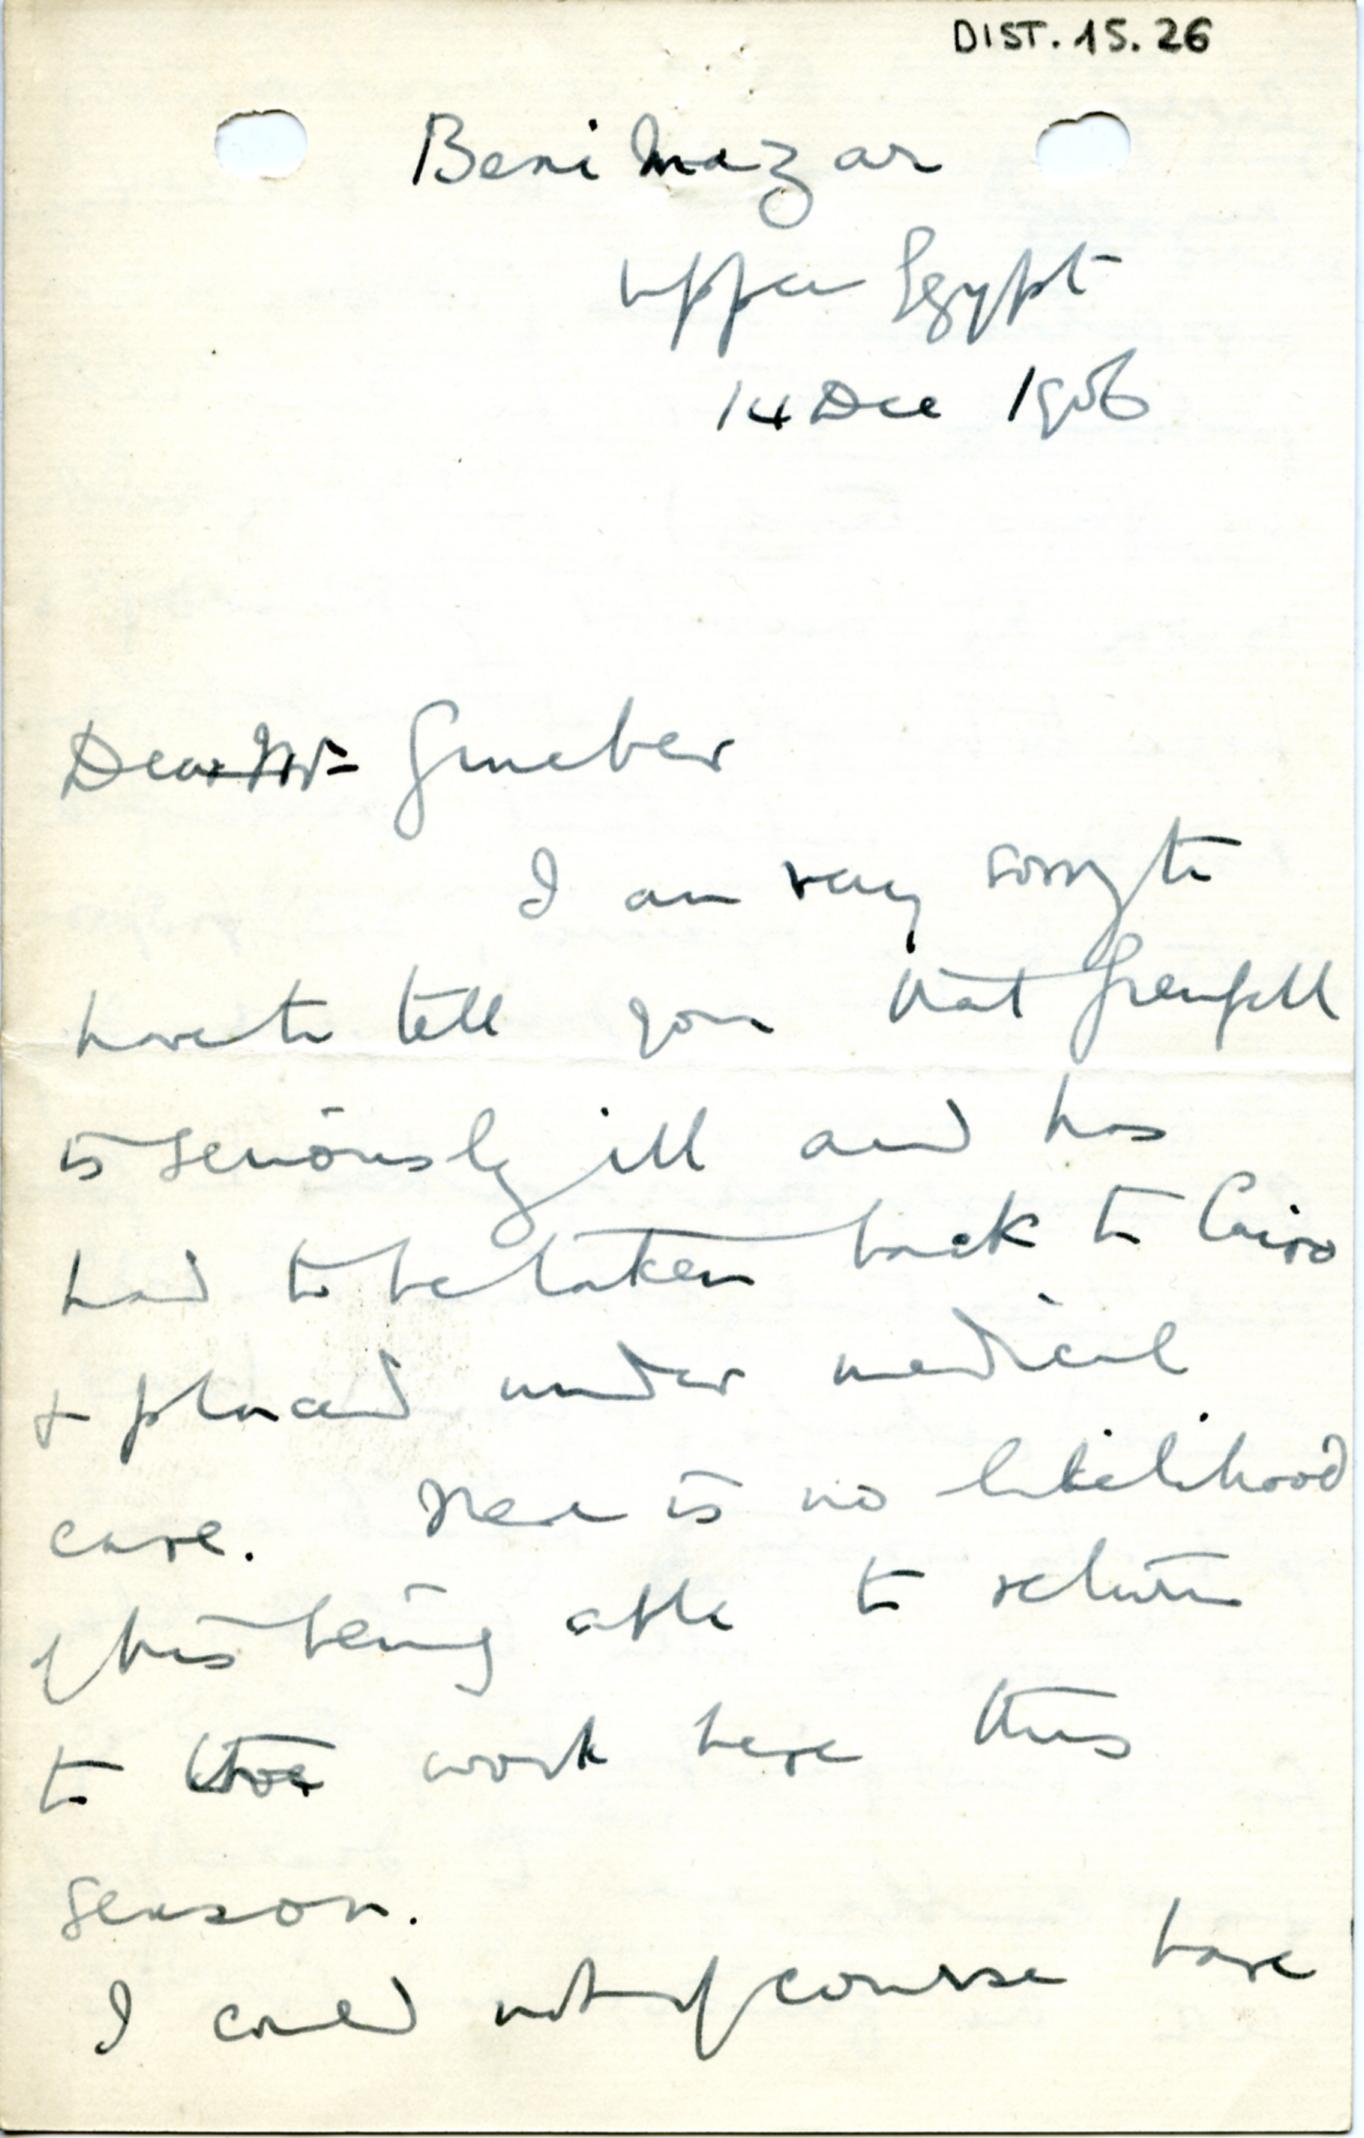 DIST. 15. 26
Beni Mazar
Upper Egypt
14 Dec 1906
Dear Mr Grueber
I am very sorry to
have to tell you that Grenfell
is seriously ill and has
had to be taken back to Cairo
& placed under medical
care. There is no likelihood
of his being able to return
to work here this
season.
I could not of course have